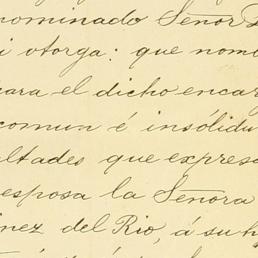 nominado Señor D
i otorga: que nom
para el dicho encar
comun é insólidu
ultades que expres
esposa la Señora
inez del Rio, á su h